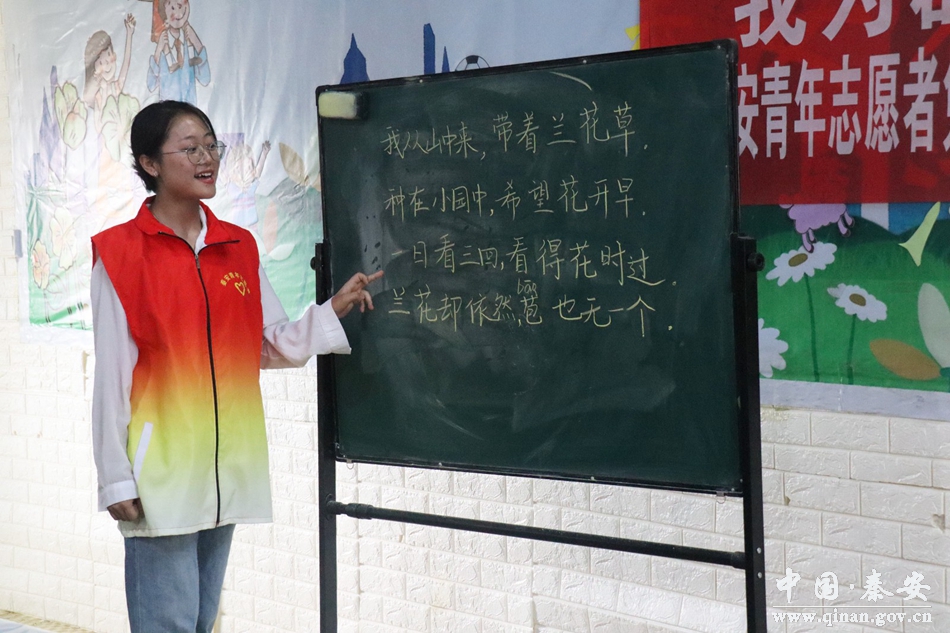 我为
安青年志愿者
我从山中来,带着兰花草.
种在小园中,希望花开早.
一日看三回,看得花时过.
bāo
兰花却依然,苞也无一个.
中国·秦安
www.qinan.gov.cn